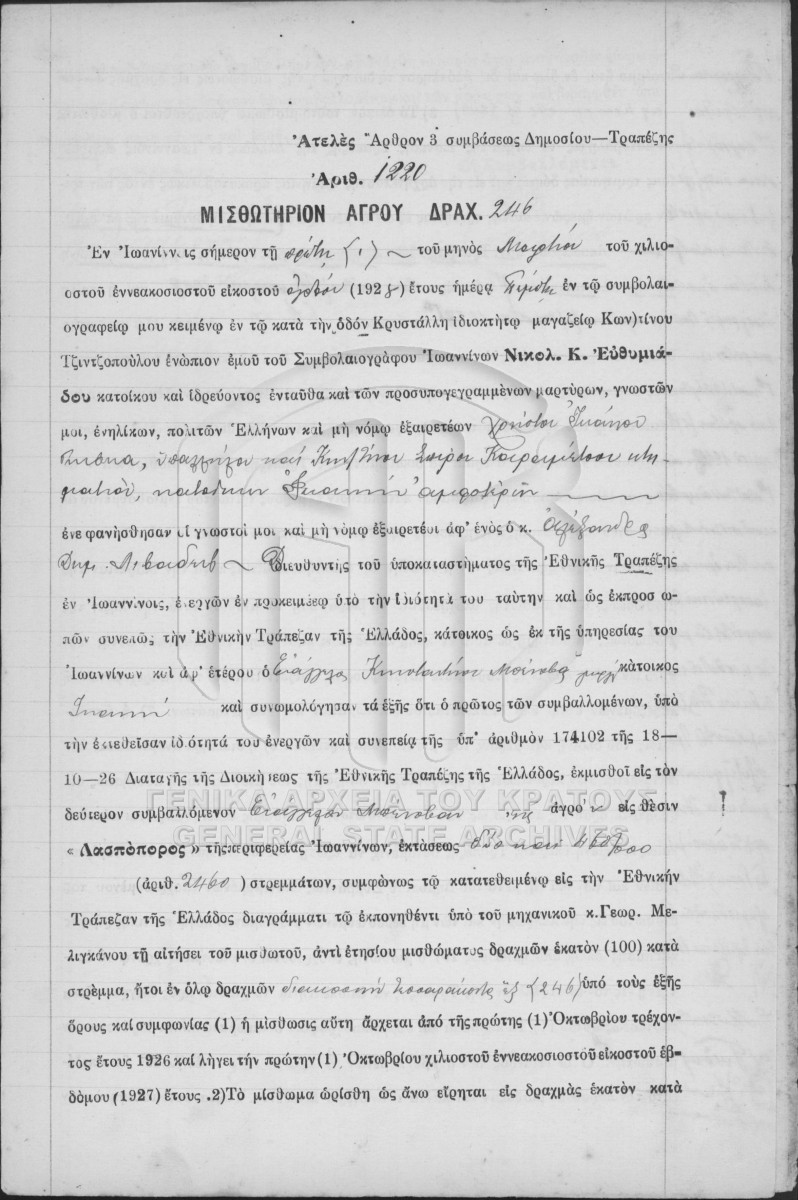 Ἀτελὲς Ἄρθρον 3 συμβάσεως Δημοσίου—Τραπέζης
Ἀριθ. 1220
ΜΙΣΘΩΤΗΡΙΟΝ ΑΓΡΟΥ ΔΡΑΧ. 246
Ἐν Ἰωαννίνοις σήμερον τῇ πρώτῃ (1) τοῦ μηνὸς Μαρτίου τοῦ χιλιο-
οστοῦ ἐννεακοσιοστοῦ εἰκοστοῦ ὀγδόου (1928) ἔτους ἡμέρᾳ Πέμπτῃ ἐν τῷ συμβολαι-
ογραφείῳ μου κειμένῳ ἐν τῷ κατὰ τὴν ὁδόν Κρυστάλλη ἰδιοκτήτῳ μαγαζείῳ Κων)τίνου
Τζιντζοπούλου ἐνώπιον ἐμοῦ τοῦ Συμβολαιογράφου Ἰωαννίνων Νικολ. Κ. Εὐθυμιά-
δου κατοίκου καὶ ἑδρεύοντος ἐνταῦθα καὶ τῶν προσυπογεγραμμένων μαρτύρων, γνωστῶν
μοι, ἐνηλίκων, πολιτῶν Ἑλλήνων καὶ μὴ νόμῳ ἐξαιρετέων Χρήστου
ὑπαλλήλου καί Σπύρου κτη-
ματίου, κατοίκων ἀμφοτέρων
ἐνεφανήσθησαν οἱ γνωστοί μοι καὶ μὴ νόμῳ ἐξαιρετέοι ἀφ' ἑνὸς ὁ κ. Ἀλέξανδρος
Δημ. Διευθυντὴς τοῦ ὑποκαταστήματος τῆς Ἐθνικῆς Τραπέζης
ἐν Ἰωαννίνοις, ἐνεργῶν ἐν προκειμένῳ ὑπὸ τὴν ἰδιότητά του ταύτην καὶ ὡς ἐκπροσω-
πῶν συνεπῶς τὴν Ἐθνικὴν Τράπεζαν τῆς Ἑλλάδος, κάτοικος ὡς ἐκ τῆς ὑπηρεσίας του
Ἰωαννίνων καὶ ἀφ' ἑτέρου ὁ Εὐάγγελος Κωνσταντίνου κάτοικος
καὶ συνωμολόγησαν τά ἑξῆς ὅτι ὁ πρῶτος τῶν συμβαλλομένων, ὑπὸ
τὴν ἐκτεθεῖσαν ἰδιότητά του ἐνεργῶν καὶ συνεπείᾳ τῆς ὑπ' ἀριθμὸν 174102 τῆς 18—
10—26 Διαταγῆς τῆς Διοικήσεως τῆς Ἐθνικῆς Τραπέζης τῆς Ἑλλάδος, ἐκμισθοῖ εἰς τὸν
δεύτερον συμβαλλόμενον Εὐάγγελον ἀγρὸν εἰς θέσιν
« Λασπόπορος » τῆς περιφερείας Ἰωαννίνων, ἐκτάσεως δύο καὶ 460/000
(ἀριθ. 2460 ) στρεμμάτων, συμφώνως τῷ κατατεθειμένῳ εἰς τὴν Ἐθνικήν
Τράπεζαν τῆς Ἑλλάδος διαγράμματι τῷ ἐκπονηθέντι ὑπὸ τοῦ μηχανικοῦ κ. Γεωρ. Με-
λιγκάνου τῇ αἰτήσει τοῦ μισθωτοῦ, ἀντὶ ἐτησίου μισθώματος δραχμῶν ἑκατὸν (100) κατὰ
στρέμμα, ἤτοι ἐν ὅλῳ δραχμῶν διακοσίων τεσσαράκοντα ἕξ (246) ὑπό τοὺς ἑξῆς
ὅρους καὶ συμφωνίας (1) ἡ μίσθωσις αὕτη ἄρχεται ἀπὸ τῆς πρώτης (1) Ὀκτωβρίου τρέχον-
τος ἔτους 1926 καὶ λήγει τήν πρώτην (1) Ὀκτωβρίου χιλιοστοῦ ἐννεακοσιοστοῦ εἰκοστοῦ ἑβ-
δόμου (1927) ἔτους .2)Τὸ μίσθωμα ὡρίσθη ὡς ἄνω εἴρηται εἰς δραχμὰς ἑκατὸν κατὰ
ΓΕΝΙΚΑ ΑΡΧΕΙΑ ΤΟΥ ΚΡΑΤΟΥΣ
GENERAL STATE ARCHIVES